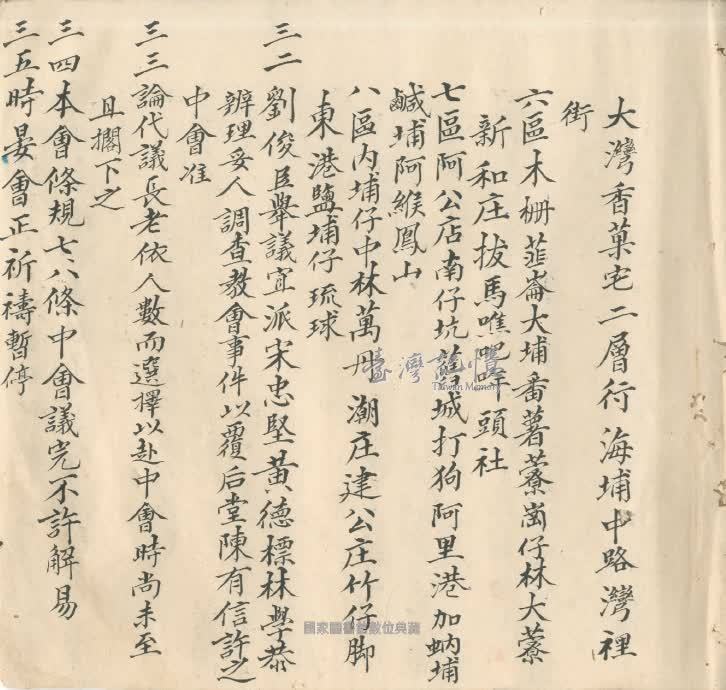 大灣香菓宅二層行海埔中路灣裡
街
六區木柵韮崙大埔番薯藔崗仔林大藔
新和庄拔馬噍吧哖頭社
七區阿公店南仔坑舊城打狗阿里港加蚋埔
鹹埔阿緱鳳山
八區內埔仔中林萬丹潮庄建公庄竹仔脚
東港鹽埔仔琉球
三二劉俊臣舉議宜派宋忠堅黃德標林學恭
辨理妥人調查教會事件以覆后堂陳有信許之
中會准
三三論代議長老依人數而選擇以赴中會時尚未至
且擱下之
三四本會條規七八條中會議完不許解易
三五時晏會正祈禱暫停
臺灣記憶
Taiwan Memory
國家圖書館數位典藏